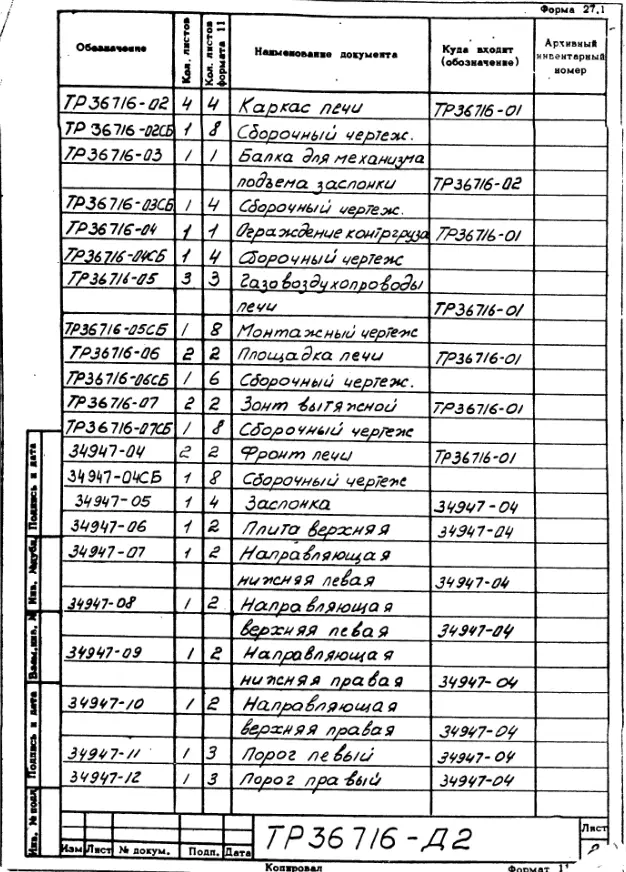 Форма 27.1
Обозначение Кол. листов Кол. листов формата 11 Наименование документа Куда входит (обозначение) Архивный инвентарный номер
ТР36716-02 4 4 Каркас печи ТР36716-01
ТР36716-02СБ 1 8 Сборочный чертеж.
ТР36716-03 1 1 Балка для механизма
подъема заслонки ТР36716-02
ТР36716-03СБ 1 4 Сборочный чертеж.
ТР36716-04 1 1 Ограждение контргруза ТР36716-01
ТР36716-04СБ 1 4 Сборочный чертеж
ТР36716-05 3 3 Газовоздухопроводы
печи ТР36716-01
ТР36716-05СБ 1 8 Монтажный чертеж
ТР36716-06 2 2 Площадка печи ТР36716-01
ТР36716-06СБ 1 6 Сборочный чертеж.
ТР36716-07 2 2 Зонт вытяжной ТР36716-01
ТР36716-07СБ 1 8 Сборочный чертеж
34947-04 2 2 Фронт печи ТР36716-01
34947-04СБ 1 8 Сборочный чертеж
34947-05 1 4 Заслонка 34947-04
34947-06 1 2 Плита верхняя 34947-04
34947-07 1 2 Направляющая
нижняя левая 34947-04
34947-08 1 2 Направляющая
верхняя левая 34947-04
34947-09 1 2 Направляющая
нижняя правая 34947-04
34947-10 1 2 Направляющая
верхняя правая 34947-04
34947-11 1 3 Порог левый 34947-04
34947-12 1 3 Порог правый 34947-04
Подпись и дата
Инв. № дубл.
Взам. инв. №
Подпись и дата
Инв. № подл
ТР36716-Д2
Лист
Изм Лист № докум. Подп. Дата
Копировал
Формат 11